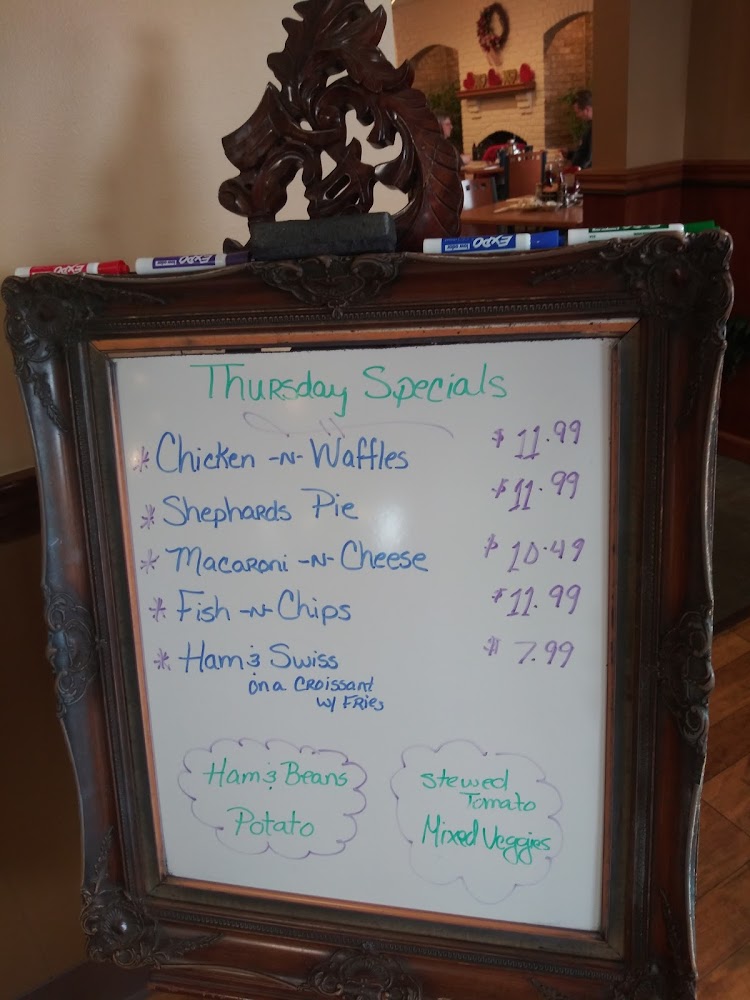 EXPO
EXPO
EXPO
EXPO
Thursday Specials
* Chicken -N- Waffles $11.99
* Shephards Pie $11.99
* Macaroni -N- Cheese $10.49
* Fish -N- Chips $11.99
* Ham & Swiss $7.99
on a Croissant
w/ Fries
Ham & Beans
Potato
Stewed
Tomato
Mixed Veggies